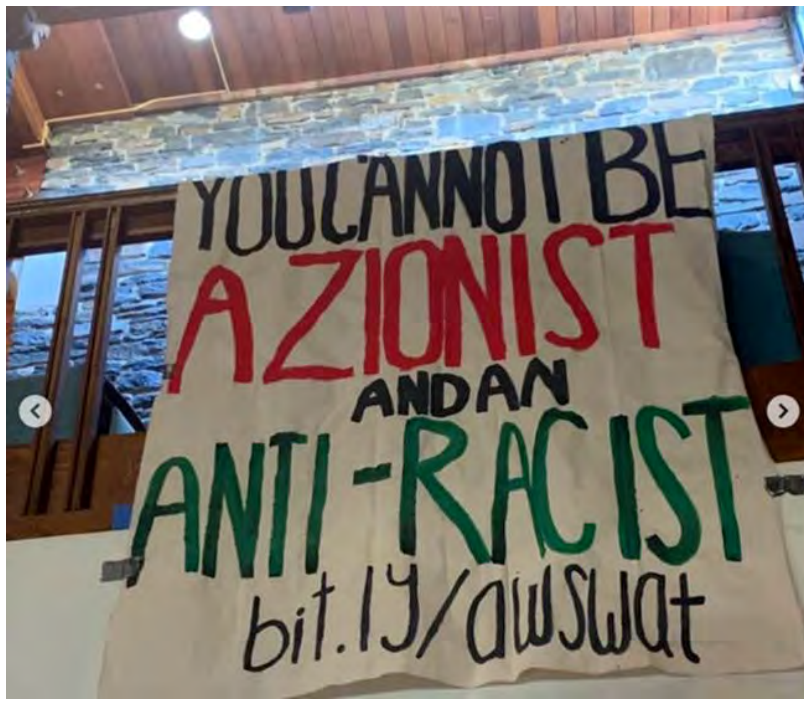 YOU CANNOT BE
A ZIONIST
AND AN
ANTI-RACIST
bit.ly/awswat